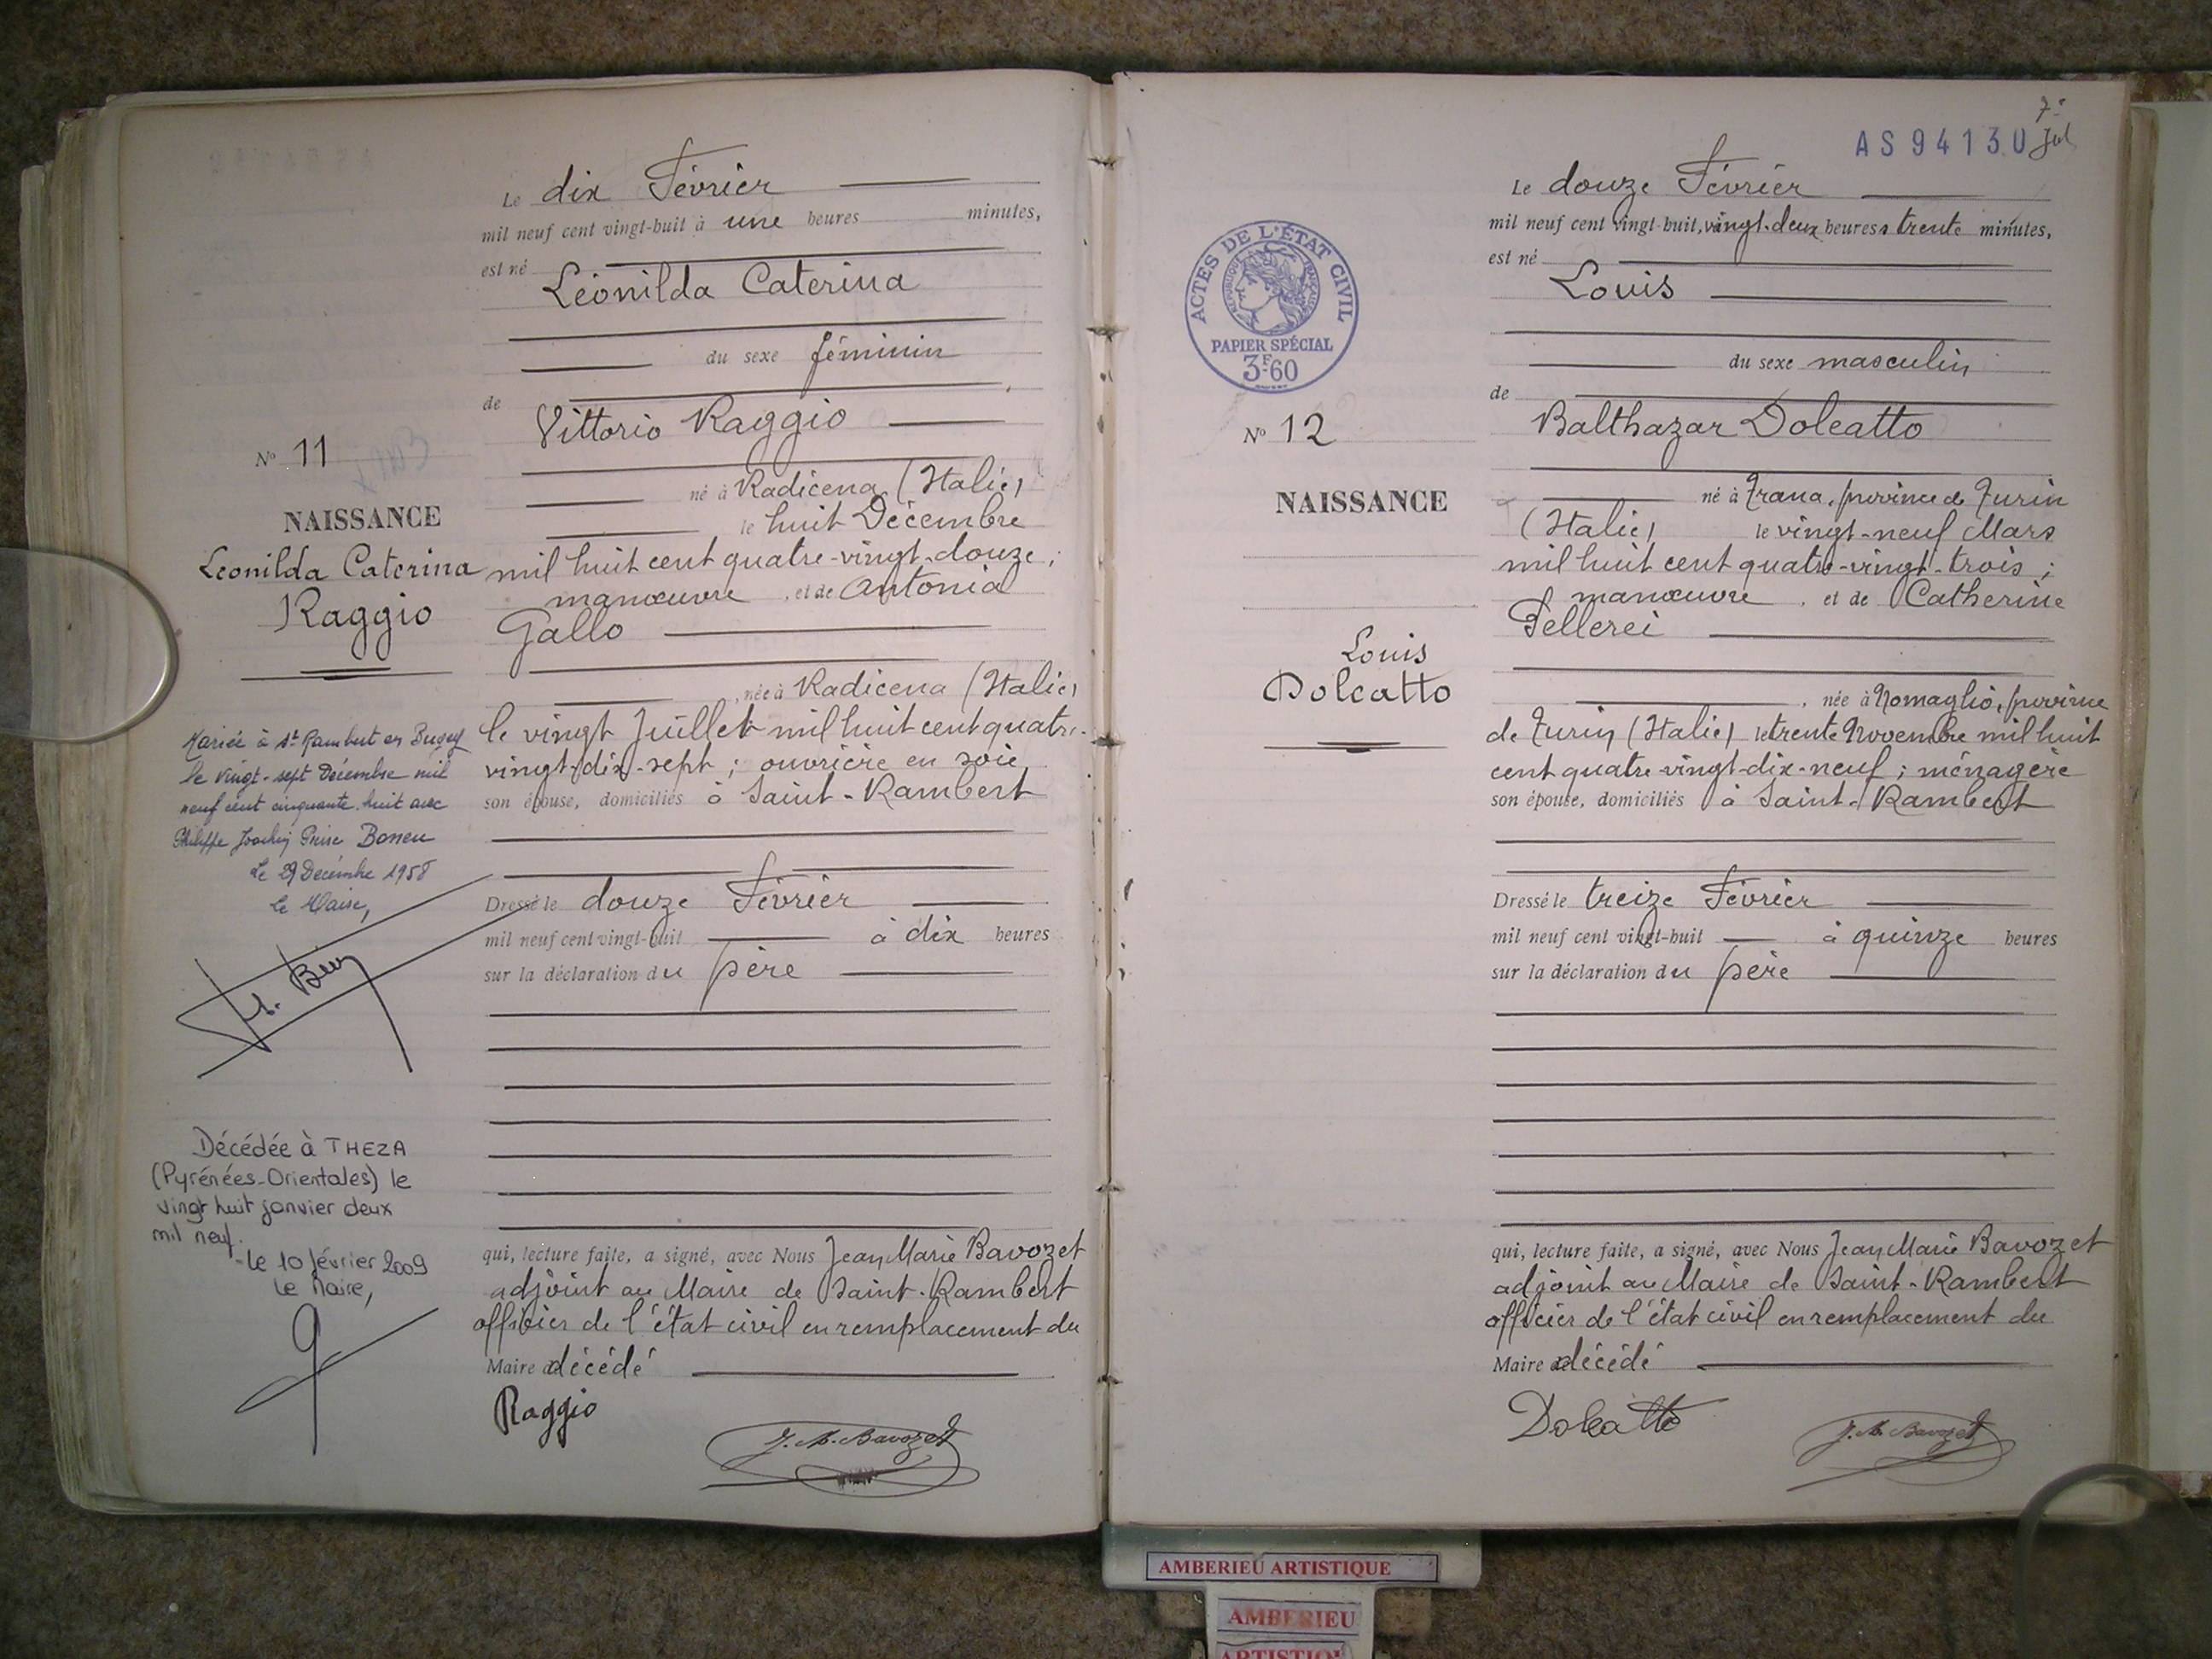 Le dix Février
mil neuf cent vingt-huit à une heures minutes,
est né
Léonilda Caterina
du sexe féminin
de
Vittorio Raggio
né à Radicena (Italie)
le huit Décembre
mil huit cent quatre-vingt-douze ;
manœuvre , et de Antonia
Gallo
, née à Radicena (Italie)
le vingt Juillet mil huit cent quatre-
vingt-dix-sept ; ouvrière en soie
son épouse, domiciliés à Saint-Rambert
Dressé le douze Février
mil neuf cent vingt-huit à dix heures
sur la déclaration du père
qui, lecture faite, a signé, avec Nous Jean Marie Bavozet
adjoint au Maire de Saint-Rambert
officier de l'état civil en remplacement du
Maire décédé
Raggio
J. M. Bavozet
N° 11
NAISSANCE
Léonilda Caterina
Raggio
Mariée à St Rambert en Bugey
le vingt-sept Décembre mil
neuf cent cinquante huit avec
Philippe Bonen
Le 29 Décembre 1958
Le Maire,
Décédée à THEZA
(Pyrénées-Orientales) le
vingt huit janvier deux
mil neuf.
-le 10 février 2009
Le Maire,
AS 94130
7
ACTES DE L'ÉTAT CIVIL
RÉPUBLIQUE FRANÇAISE
PAPIER SPÉCIAL
3F.60
N° 12
NAISSANCE
Louis
Dolcatto
Le douze Février
mil neuf cent vingt-huit, vingt-deux heures trente minutes,
est né
Louis
du sexe masculin
de
Balthazar Dolcatto
né à Trana, province de Turin
(Italie) le vingt-neuf Mars
mil huit cent quatre-vingt-trois ;
manœuvre , et de Catherine
Pellerei
, née à Nomaglio, province
de Turin (Italie) le trente Novembre mil huit
cent quatre-vingt-dix-neuf ; ménagère
son épouse, domiciliés à Saint-Rambert
Dressé le treize Février
mil neuf cent vingt-huit à quinze heures
sur la déclaration du père
qui, lecture faite, a signé, avec Nous Jean Marie Bavozet
adjoint au Maire de Saint-Rambert
officier de l'état civil en remplacement du
Maire décédé
Dolcatto
J. M. Bavozet
AMBERIEU ARTISTIQUE
AMBERIEU
ARTISTIQUE